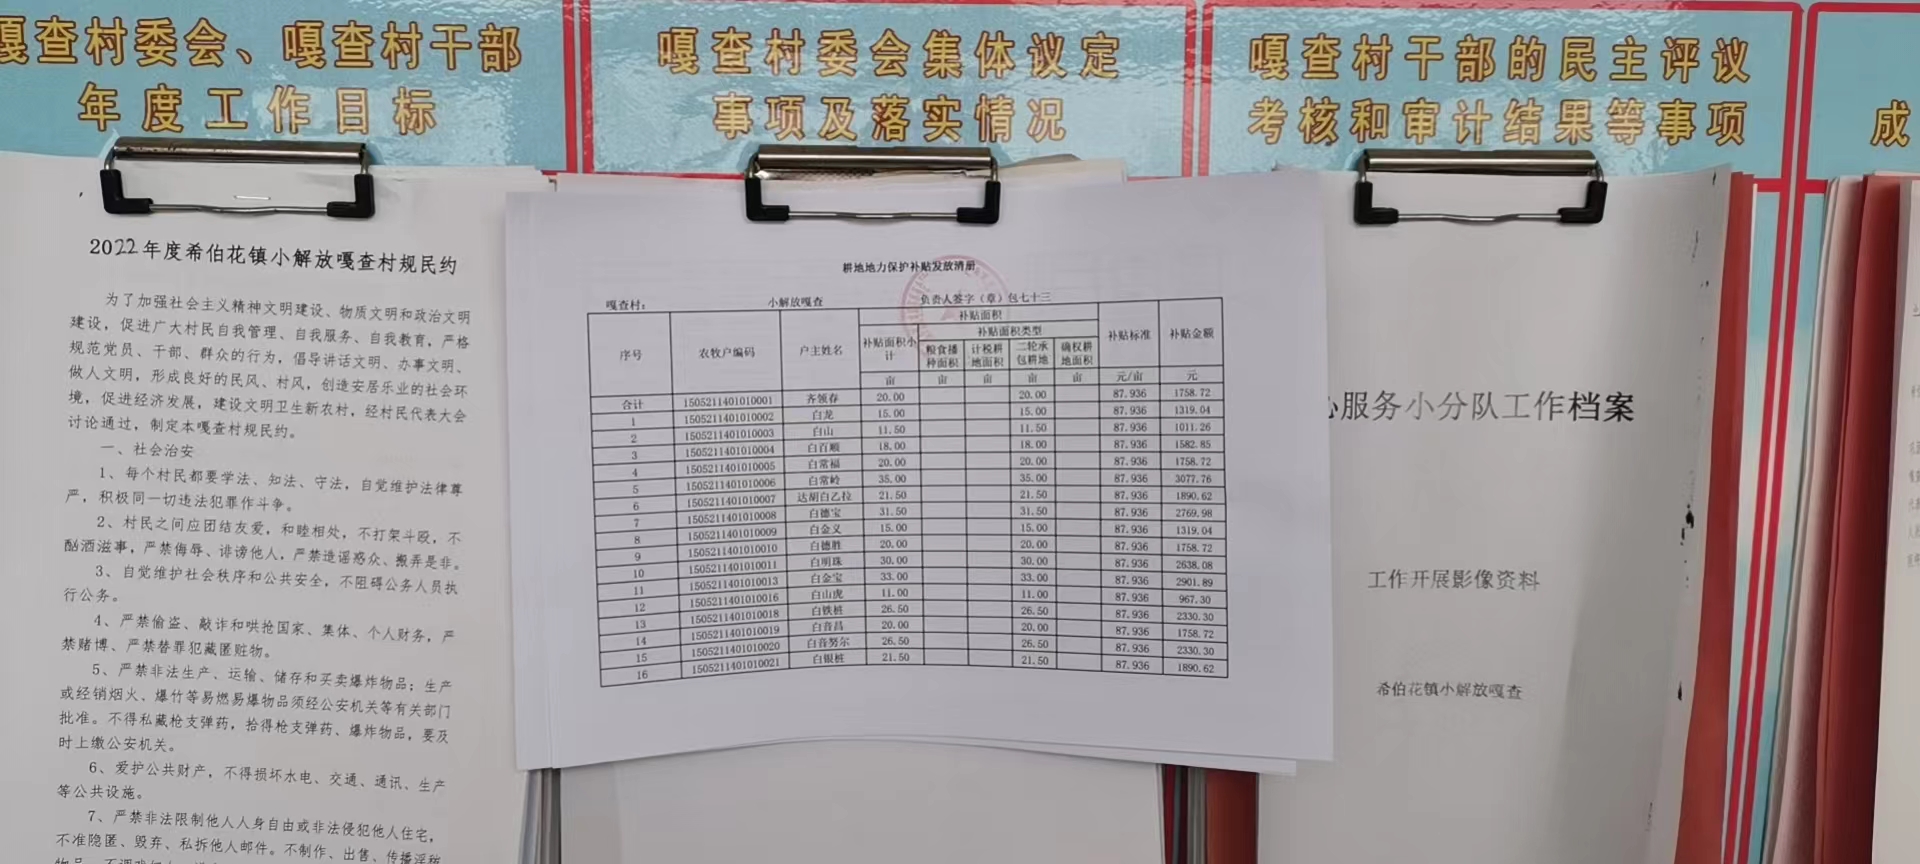 嘎查村委会、嘎查村干部
年度工作目标
嘎查村委会集体议定
事项及落实情况
嘎查村干部的民主评议
考核和审计结果等事项
成
2022年度希伯花镇小解放嘎查村规民约
为了加强社会主义精神文明建设、物质文明和政治文明
建设，促进广大村民自我管理、自我服务、自我教育，严格
规范党员、干部、群众的行为，倡导讲话文明、办事文明、
做人文明，形成良好的民风、村风，创造安居乐业的社会环
境，促进经济发展，建设文明卫生新农村，经村民代表大会
讨论通过，制定本嘎查村规民约。
一、社会治安
1、每个村民都要学法、知法、守法，自觉维护法律尊
严，积极同一切违法犯罪作斗争。
2、村民之间应团结友爱，和睦相处，不打架斗殴，不
酗酒滋事，严禁侮辱、诽谤他人，严禁造谣惑众、搬弄是非。
3、自觉维护社会秩序和公共安全，不阻碍公务人员执
行公务。
4、严禁偷盗、敲诈和哄抢国家、集体、个人财务，严
禁赌博、严禁替罪犯藏匿赃物。
5、严禁非法生产、运输、储存和买卖爆炸物品；生产
或经销烟火、爆竹等易燃易爆物品须经公安机关等有关部门
批准。不得私藏枪支弹药，拾得枪支弹药、爆炸物品，要及
时上缴公安机关。
6、爱护公共财产，不得损坏水电、交通、通讯、生产
等公共设施。
7、严禁非法限制他人人身自由或非法侵犯他人住宅，
不准隐匿、毁弃、私拆他人邮件。不制作、出售、传播淫秽
耕地地力保护补贴发放清册
嘎查村： 小解放嘎查 负责人签字（章）包七十三
序号 农牧户编码 户主姓名 补贴面积 补贴标准 补贴金额
补贴面积小计 补贴面积类型
粮食播种面积 计税耕地面积 二轮承包耕地 确权耕地面积
亩 亩 亩 亩 亩 元/亩 元
合计 1505211401010001 齐领春 20.00 20.00 87.936 1758.72
1 1505211401010002 白龙 15.00 15.00 87.936 1319.04
2 1505211401010003 白山 11.50 11.50 87.936 1011.26
3 1505211401010004 白百顺 18.00 18.00 87.936 1582.85
4 1505211401010005 白常福 20.00 20.00 87.936 1758.72
5 1505211401010006 白常岭 35.00 35.00 87.936 3077.76
6 1505211401010007 达胡白乙拉 21.50 21.50 87.936 1890.62
7 1505211401010008 白德宝 31.50 31.50 87.936 2769.98
8 1505211401010009 白金义 15.00 15.00 87.936 1319.04
9 1505211401010010 白德胜 20.00 20.00 87.936 1758.72
10 1505211401010011 白明珠 30.00 30.00 87.936 2638.08
11 1505211401010013 白金宝 33.00 33.00 87.936 2901.89
12 1505211401010016 白山虎 11.00 11.00 87.936 967.30
13 1505211401010018 白铁桩 26.50 26.50 87.936 2330.30
14 1505211401010019 白音昌 20.00 20.00 87.936 1758.72
15 1505211401010020 白音努尔 26.50 26.50 87.936 2330.30
16 1505211401010021 白银桩 21.50 21.50 87.936 1890.62
服务小分队工作档案
工作开展影像资料
希伯花镇小解放嘎查